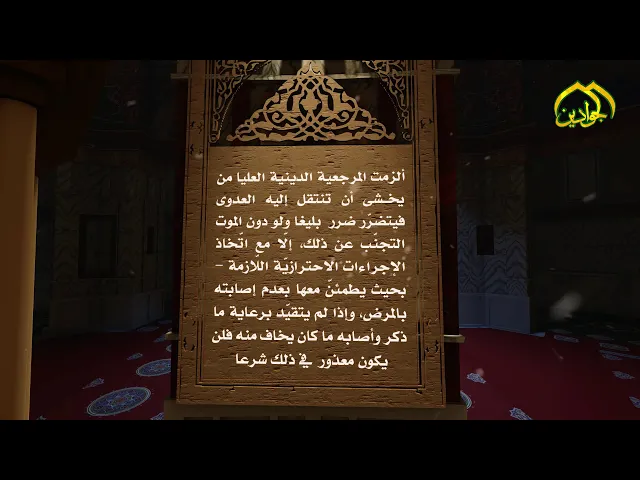 الجوادين
ألزمت المرجعية الدينية العليا من
يخشى أن تنتقل إليه العدوى
فيتضرّر ضرر بليغا ولو دون الموت
التجنّب عن ذلك، إلّا مع اتّخاذ
الإجراءات الاحترازيّة اللّازمة –
بحيث يطمئنّ معها بعدم إصابته
بالمرض، وإذا لم يتقيّد برعاية ما
ذكر وأصابه ما كان يخاف منه فلن
يكون معذور في ذلك شرعا